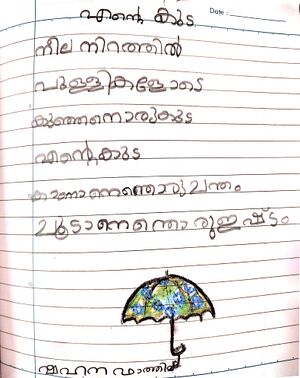 എന്റെ കുട
Date :
നീല നിറത്തിൽ
പുള്ളികളോടെ
കുഞ്ഞനൊരുകുട
എന്റെകുട
കാണാനെന്തൊരുചന്തം
ചൂടാനെന്തൊരുഇഷ്ടം
ഷഹന ഫാത്തിമ